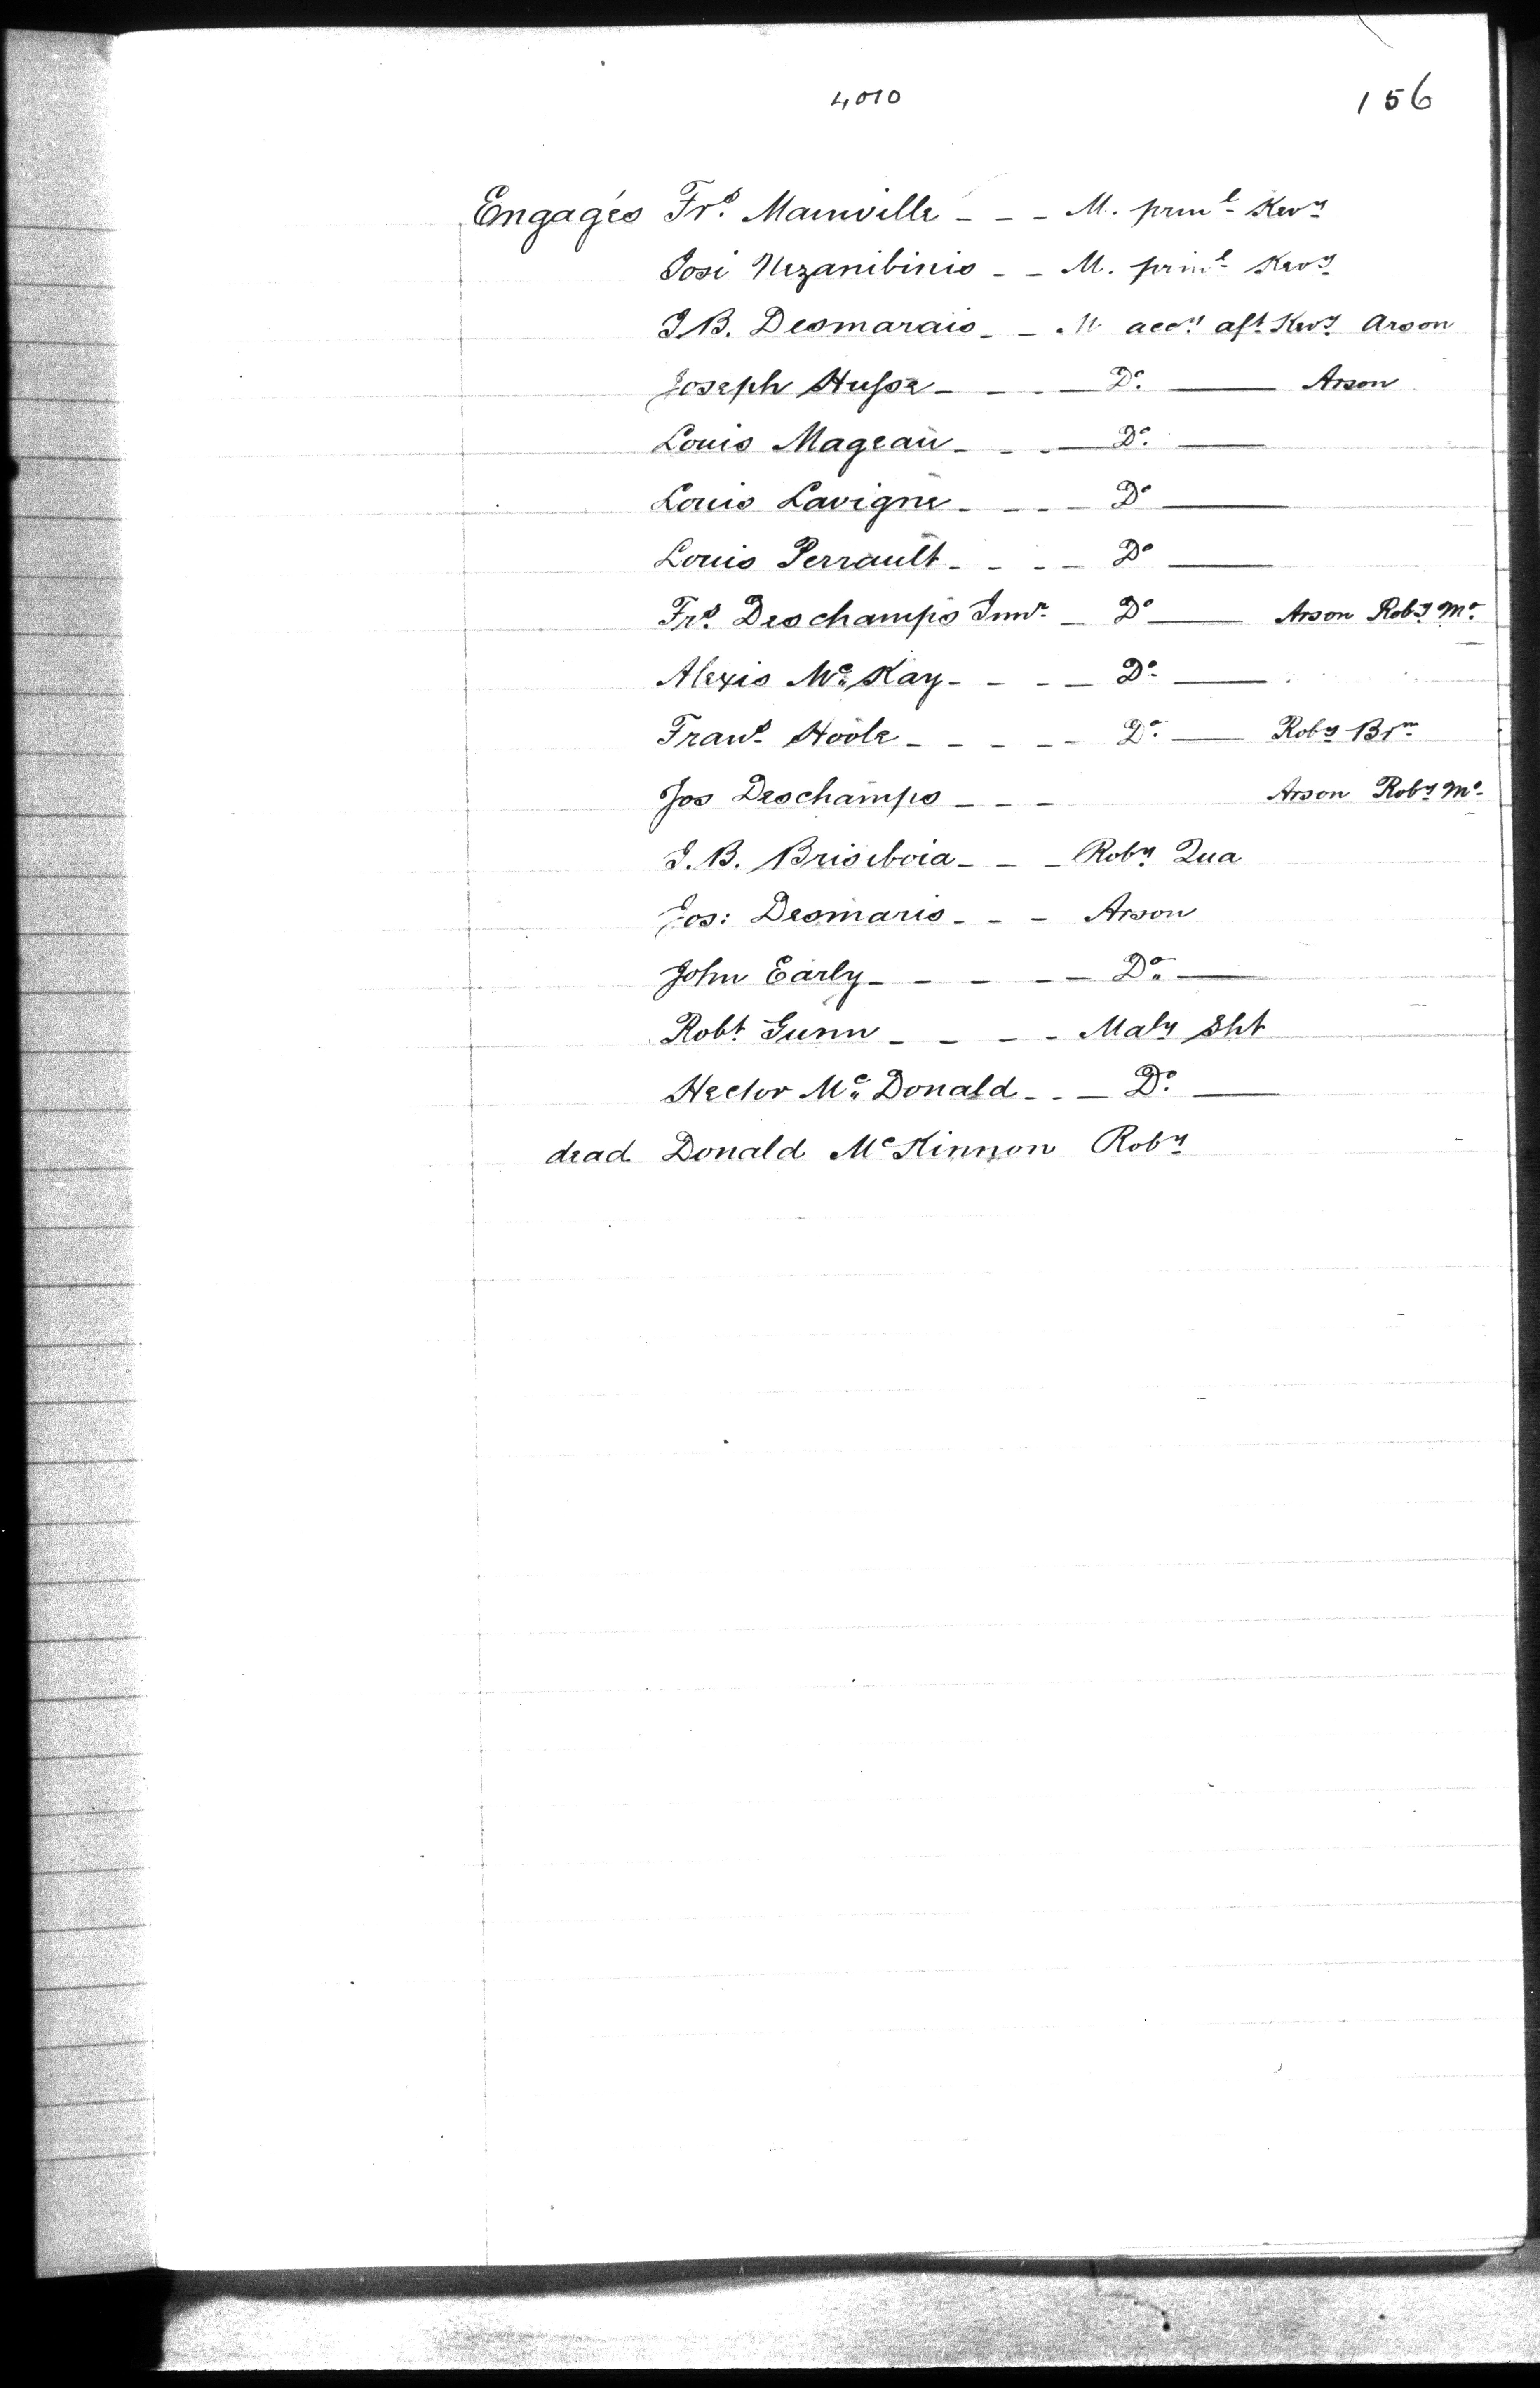 4010
156
Engagés Frs. Mainville - - - M. prinl Kevy
Josi Nezanibinis - - M. prinl Kevy
J B. Desmarais - - M accy aft Kevy Arson
Joseph Husse - - - - Do. — Arson
Louis Mageau - - - Do. —
Louis Lavigne - - - - Do —
Louis Perrault - - - - Do —
Frs. Deschamps Junr - Do — Arson Roby Mo.
Alexis Mc. Kay - - - - Do —
Frans Hoole - - - - - Do. — Roby Brm
Jos Deschamps - - - Arson Roby Mo.
J. B. Briseboia - - - Roby Qua
Jos: Desmaris - - - Arson
John Early - - - - - Do. —
Robt. Gunn - - - - Maly Sht
Hector Mc. Donald - - - Do. —
dead Donald McKinnon Roby